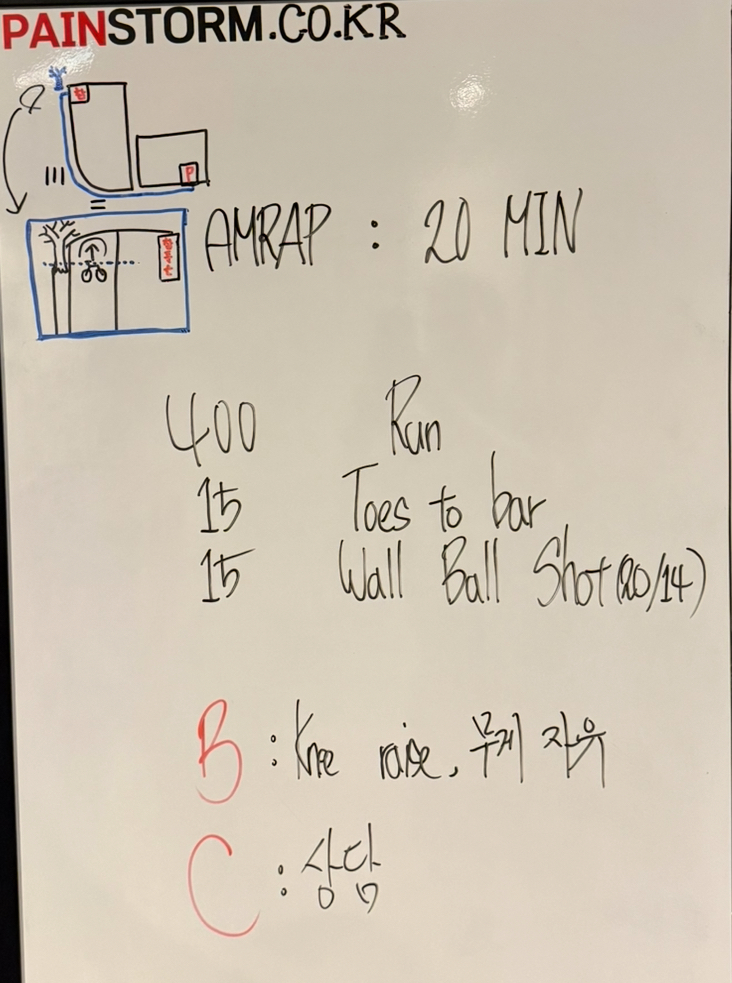 PAINSTORM.CO.KR
P
AMRAP : 20 MIN
400 Run
15 Toes to bar
15 Wall Ball Shot (20/14)
B : Knee raise, 무게 자유
C : 상담